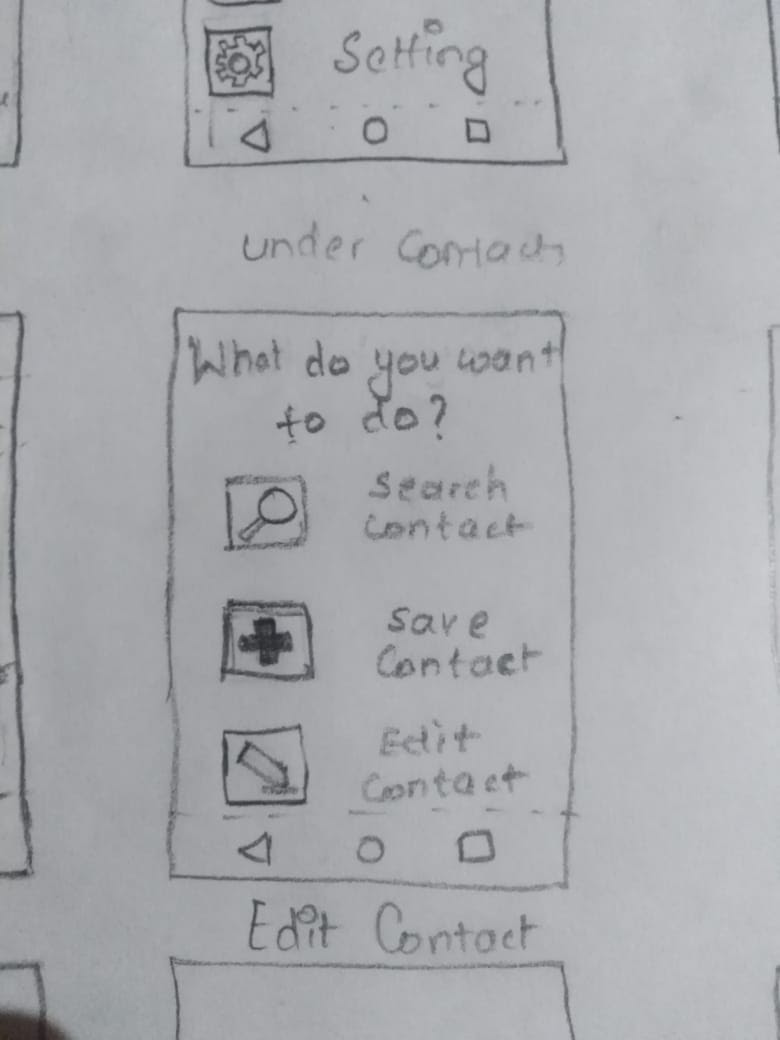 Setting
under Contact
What do you want
to do?
Search
Contact
Save
Contact
Edit
Contact
Edit Contact